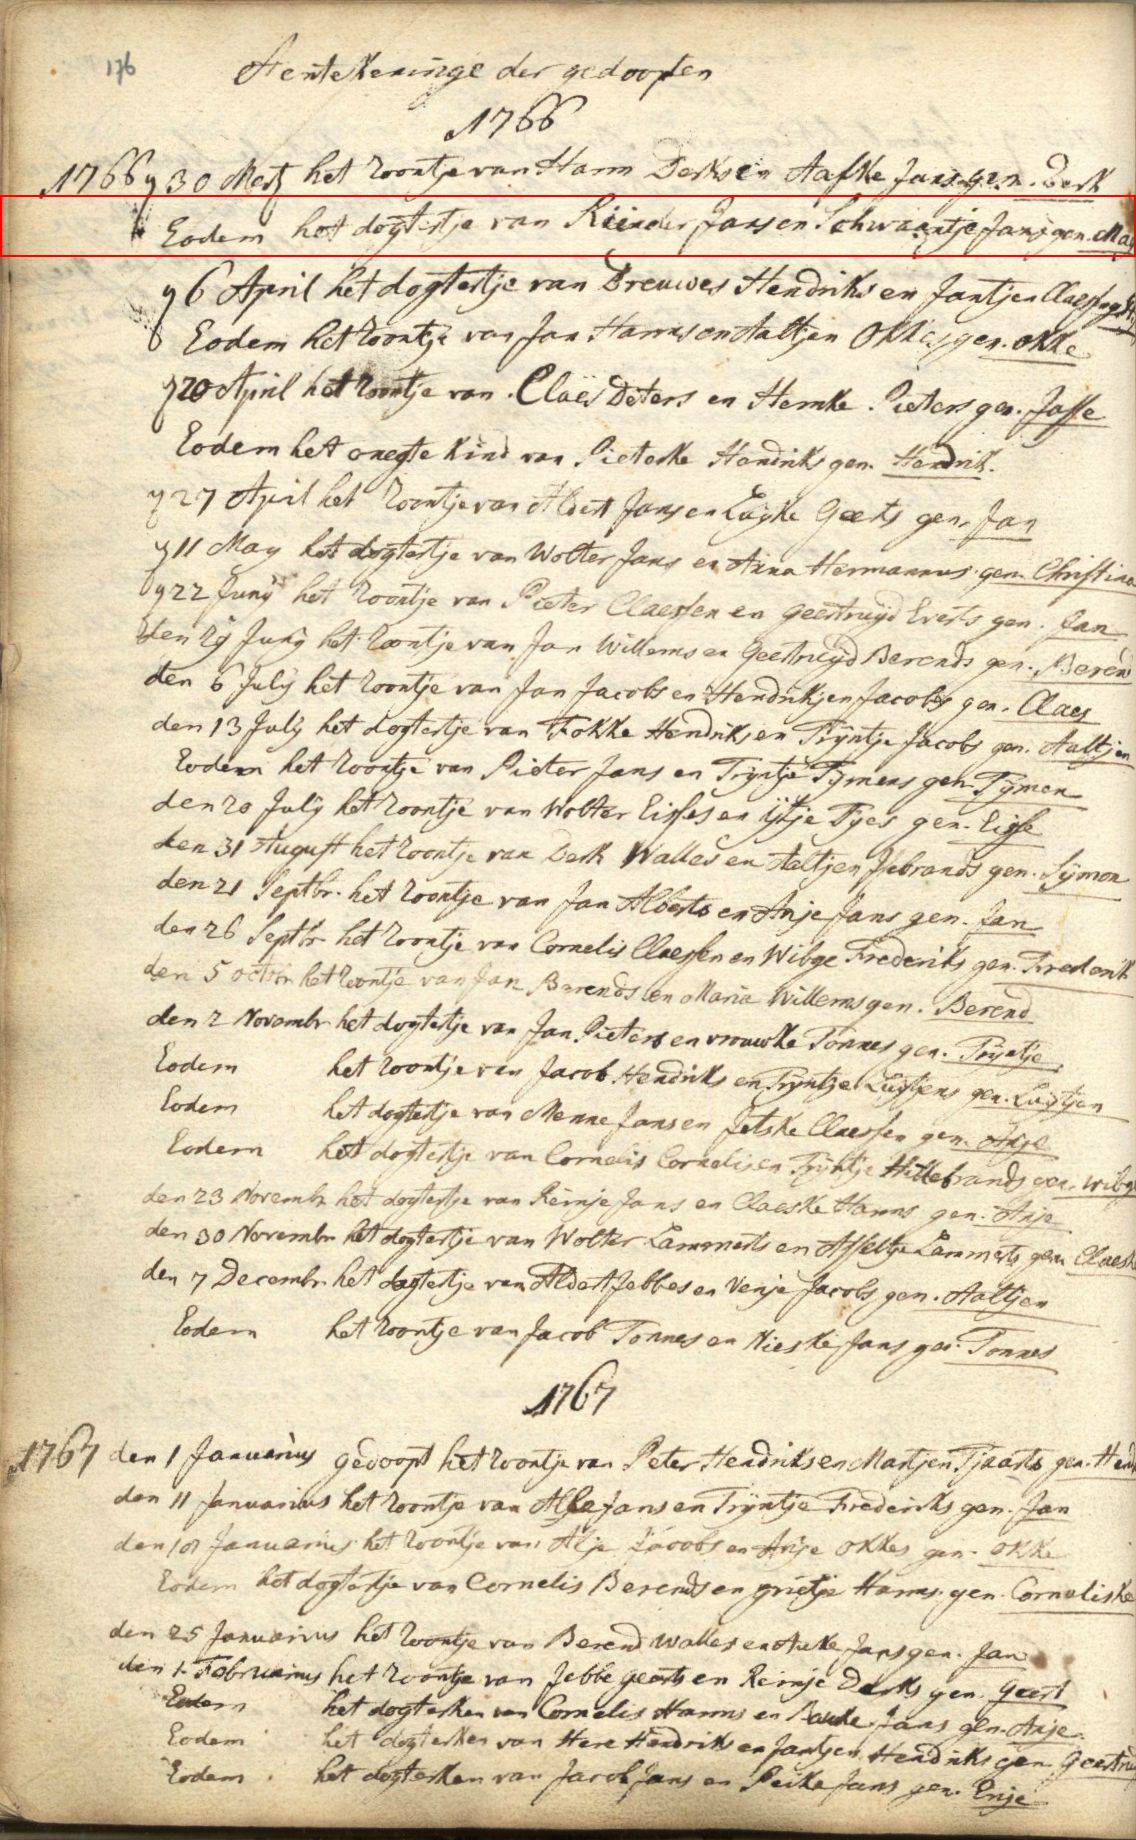 176
Aentekeninge der gedoopten
1766
1766 y 30 Mertz het zoontje van Harm Derks en Aafke Jans gen. Derk
Eodem het dogtertje van Reinder Jans en Schwaantje Jans gen.
y 6 April het dogtertje van Dreuwes Hendriks en Jantjen Claessen
Eodem het zoontje van Jan Harms en Aaltjen Okkes gen. Okke
y 20 April het zoontje van Claes Deters en Hemke Pieters gen. Jasse
Eodem het onegte kind van Pieterke Hendriks gen. Hendrik.
y 27 April het zoontje van Aldert Jans en Luyke Geerts gen. Jan
y 11 May het dogtertje van Wolter Jans en Anna Hermannus gen. Christina
y 22 Junÿ het zoontje van Pieter Claessen en Geertruyd Everts gen. Jan
den 29 Junÿ het zoontje van Jan Willems en Geertruyd Berends gen. Berend
den 6 Julÿ het zoontje van Jan Jacobs en Hendrikjen Jacobs gen. Claes
den 13 Julÿ het dogtertje van Fokke Hendriks en Trÿntje Jacobs gen. Aaltjen
Eodem het zoontje van Pieter Jans en Trÿntje Tÿmens gen. Tÿmen
den 20 Julÿ het zoontje van Wolter Eisses en Ytje Tÿes gen. Eisse
den 31 August het zoontje van Derk Walles en Aeltjen Ysebrands gen. Sÿmon
den 21 Septbr. het zoontje van Jan Alberts en Anje Jans gen. Jan
den 26 Septbr het zoontje van Cornelis Claessen en Wibge Frederiks gen. Frederik
den 5 octobr het zoontje van Jan Barends en Maria Willems gen. Berend
den 2 Novembr het dogtertje van Jan Pieters en vrouwke Tonnes gen. Trÿntje
Eodem het zoontje van Jacob Hendriks en Trÿntje Luytjens gen. Luytjen
Eodem het dogtertje van Menne Jans en Jetske Claessen gen. Anje
Eodem het dogtertje van Cornelis Cornelis en Trÿntje Hillebrands gen. wibge
den 23 Novembr het dogtertje van Reinje Jans en Claeske Harms gen. Anje
den 30 Novembr het dogtertje van Wolter Lammerts en Lammerts gen. Claeske
den 7 Decembr. het dogtertje van Aldert Jebbes en Venje Jacobs gen. Aaltjen
Eodem het zoontje van Jacob Tonnes en Nieske Jans gen. Tonnes
1767
1767 den 1 Januarius gedoopt het zoontje van Peter Hendriks en Martjen Tjaarts gen. Hend
den 11 Januarius het zoontje van Alje Jans en Trÿntje Frederiks gen. Jan
den 18 Januarius het zoontje van Alje Jacobs en Anje Okkes gen. Okke
Eodem het dogtertje van Cornelis Berends en grietje Harms gen. Corneliske
den 25 Januarius het zoontje van Berend Walles en Auke Jans gen. Jan
den 1. Februarius het zoontje van Jebbe geerts en Reinje Derks gen. geert
Eodem het dogterken van Cornelis Harms en Bauke Jans gen. Anje
Eodem het dogterken van Here Hendriks en Jantjen Hendriks gen. Geertruy
Eodem het dogterken van Jacob Jans en Peike Jans gen. Enje